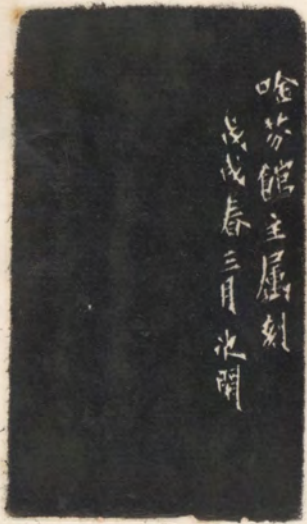 唫芬館主屬刻
戊戌春三月池開